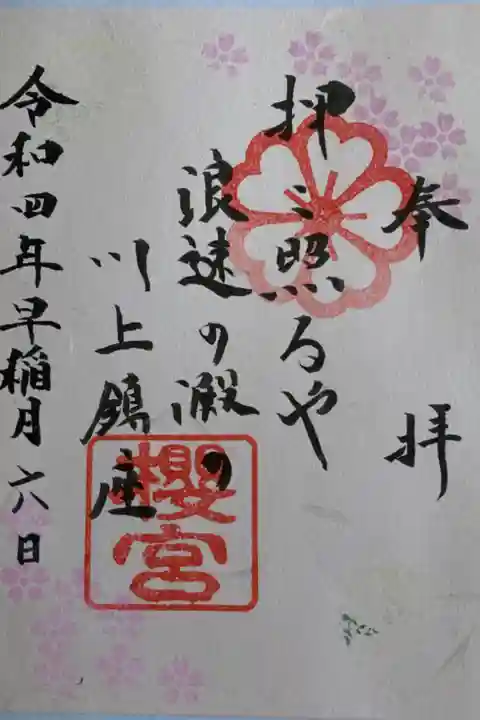 奉拝
押〻照るや
浪速の澱の
川上鎮座
令和四年早稲月六日
櫻宮